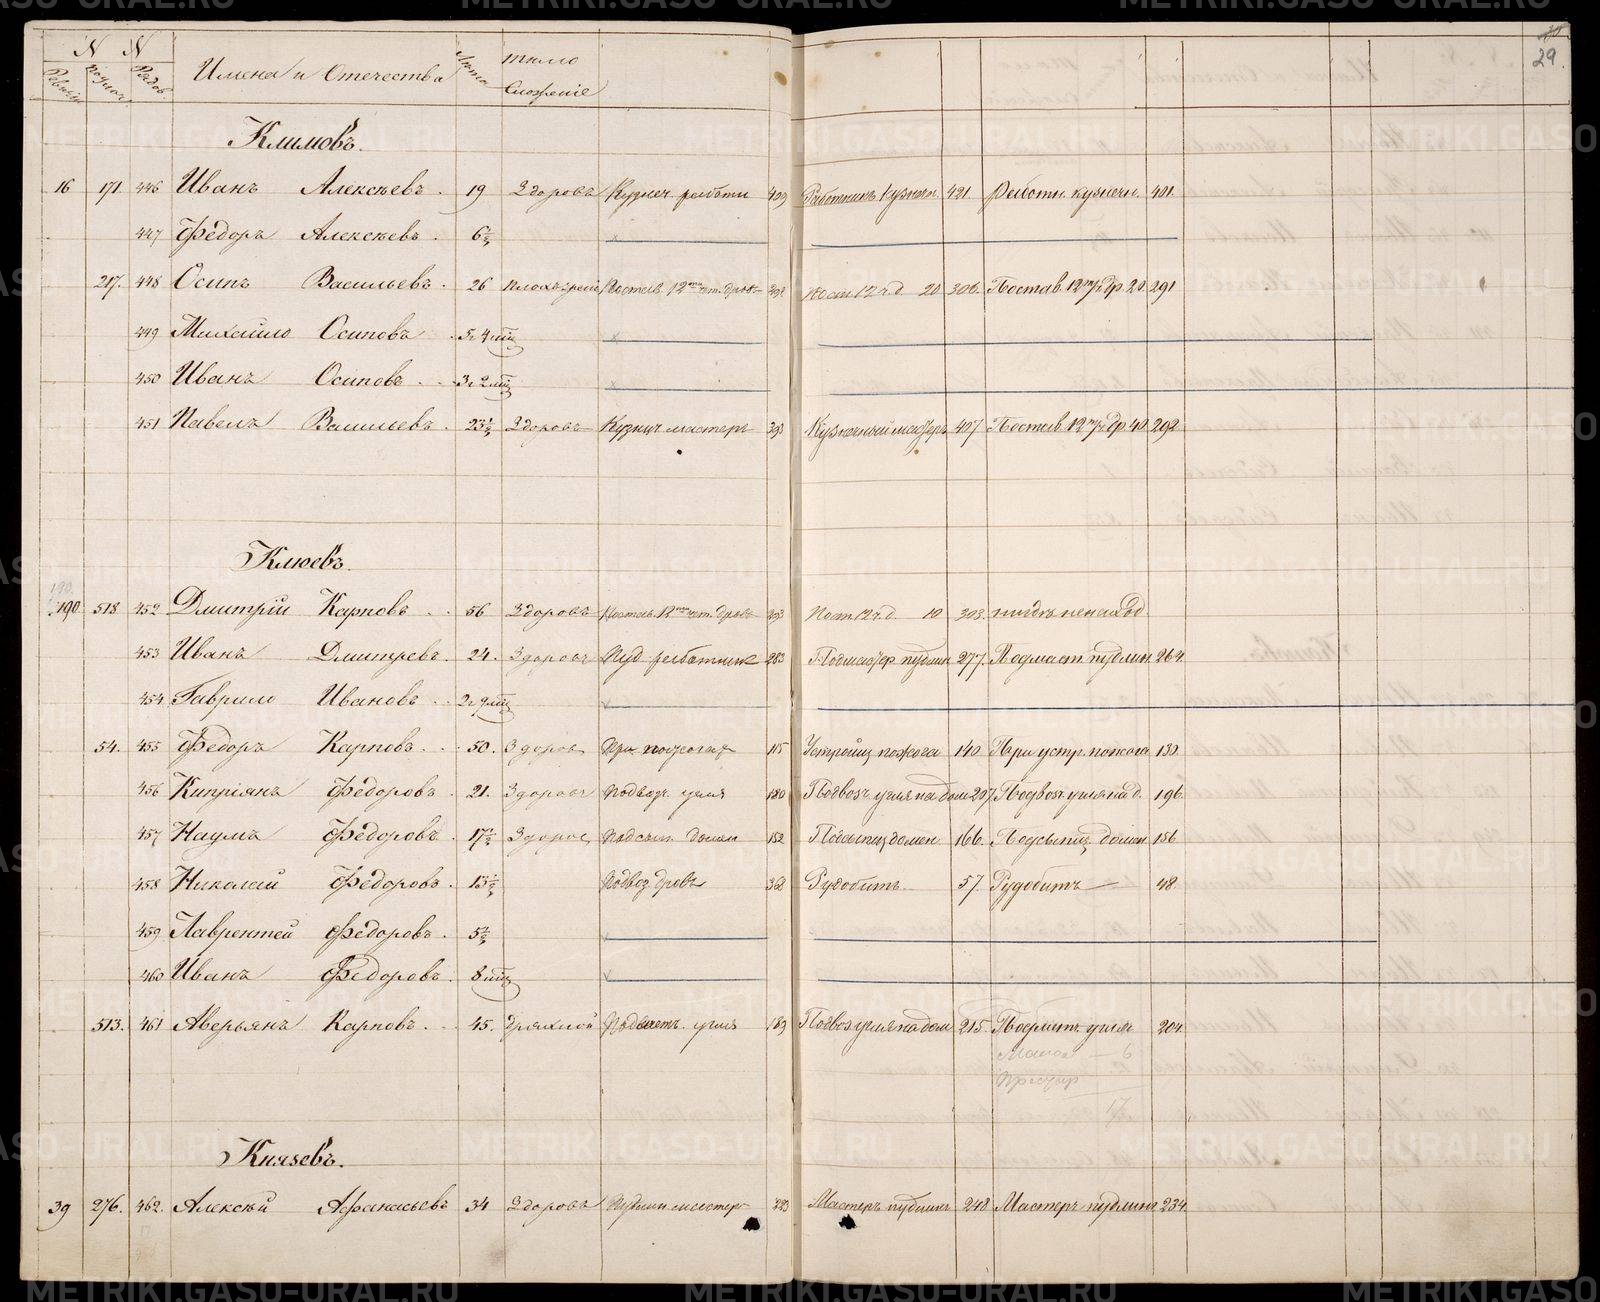 29.
N N
Ревизіи Рядов
Имена и Отечества Лѣта
тѣло
Сложеніе
Климовъ.
16 171 446 Иванъ Алексѣевъ. 19 Здоровъ Кузнеч. работн 409 Работникъ Кузнечн. 421. Работн. кузнечн. 401.
447 Ѳедоръ Алексѣевъ. 6½
217. 448 Осипъ Васильевъ. 26 Постав. 12 чет. дровъ 292 Пост 12 ч. д. 20 306. Постав. 12 ч. др. 20. 291
449 Михайло Осиповъ. 5 г 4 мѣц
450 Иванъ Осиповъ. 3 г 2 мѣц
451 Павелъ Васильевъ. 23½ Здоровъ Кузнеч мастеръ 393 Кузнечный мастеръ 407 Постав. 12 ч. др. 40. 292.
Клюевъ.
190
190. 518 452 Дмитрій Карповъ. 56 Здоровъ Постав. 12 чет. дровъ 293 Пост 12 ч. д. 10 308. нигдѣ ненаход
453 Иванъ Дмитревъ. 24. Здоровъ Пуд работникъ 283 Подмастер. пудлин 277. Подмаст. пудлин. 264.
454 Гаврило Ивановъ. 2 г 9 мѣц
54. 455 Ѳедоръ Карповъ. 50. Здоровъ При пожогах 115 Устройщ. пожога 140. При устр. пожога 130.
456 Кипріянъ Ѳедоровъ. 21. Здоровъ Подвозч. угля 180 Подвозч. угля на дом 207. Подвоз. угля на д. 196.
457 Наумъ Ѳедоровъ. 17½ Здоров Подсып. домен 152 Подсыпщ. домен. 166. Подсыпщ. домен 156
458 Николай Ѳедоровъ. 13½ Подвоз. дровъ 362 Рудобитъ 57. Рудобитъ 48.
459 Лаврентей Ѳедоровъ. 5½
460 Иванъ Ѳедоровъ. 8 мѣц
513. 461 Аверьянъ Карповъ. 45. дряхлой угля 189 Подвоз угля на дом 215. угля 204.
Князевъ.
39 276. 462. Алексѣй Афанасьевъ 34 Здоровъ Пудлин мастер 229 Мастеръ пудлинг. 248 Мастеръ пудлинг 234.